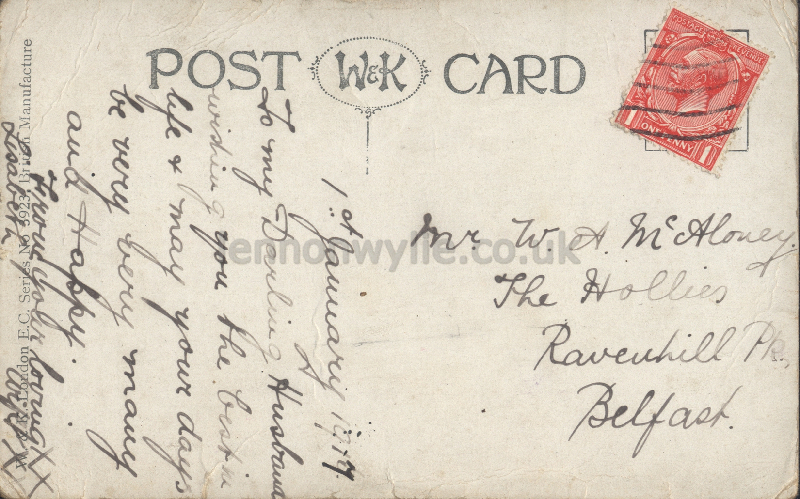 POST W&K CARD
POSTAGE REVENUE
ONE PENNY
1 1
1st January 1919.
To my Darling Husband
wishing you the best in
life & may your days
be very very many
and Happy.
From your loving
Wife XX
W. & K. London E.C. Series No 3923. British Manufacture
Mr W. A. McAloney
The Hollies
Ravenhill Pk.
Belfast.
lennonwylie.co.uk